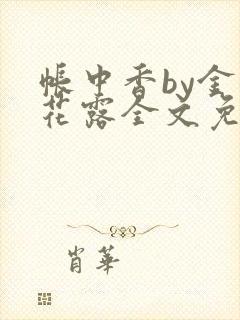 帐中香by金
花露全文免
肖华